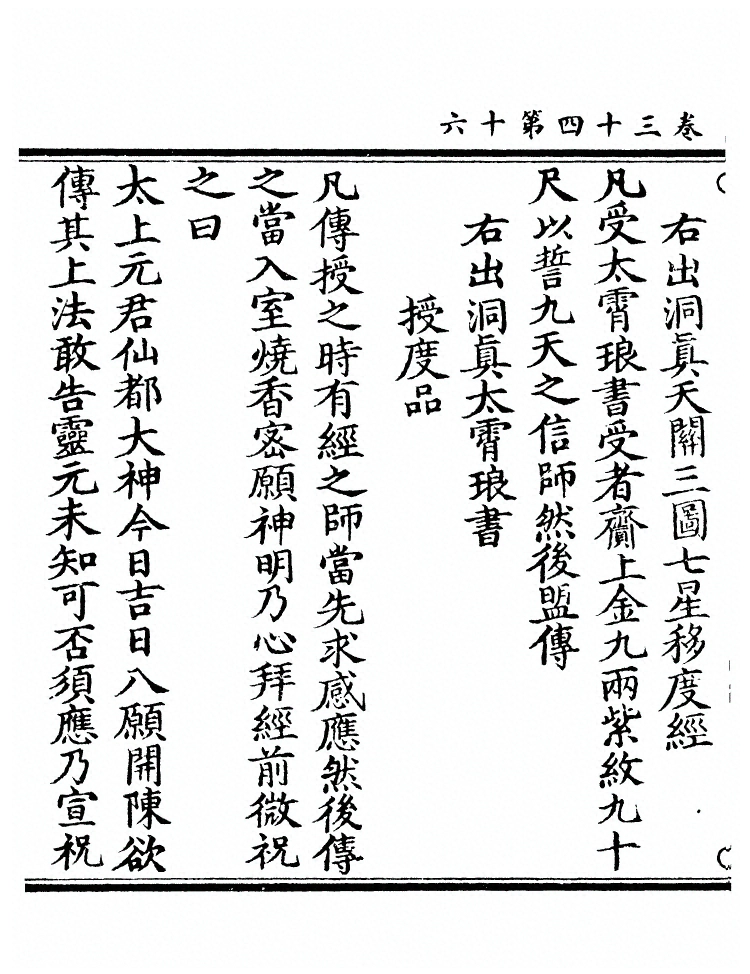 卷三十四第十六
右出洞眞天關三圖七星移度經
凡受太霄琅書受者齎上金九兩紫紋九十
尺以誓九天之信師然後盟傳
右出洞眞太霄琅書
授度品
凡傳授之時有經之師當先求感應然後傳
之當入室燒香密願神明乃心拜經前微祝
之曰
太上元君仙都大神今日吉日八願開陳欲
傳其上法敢告靈元未知可否須應乃宣祝